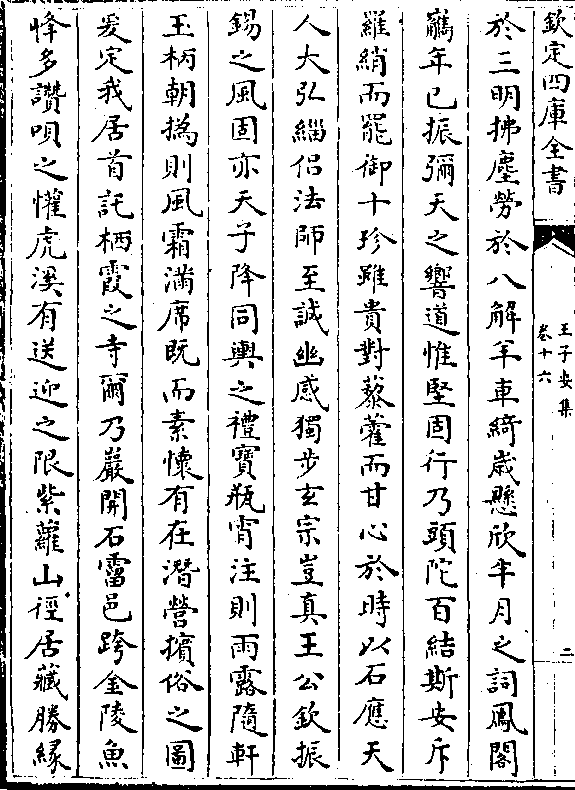 欽定四庫全書
王子安集
卷十六
二
於三明拂塵勞於八解羊車綺歲懸欣半月之詞鳳閣
鶴年已振彌天之響道惟堅固行乃頭陀百結斯安斥
羅綃而罷御十珍雖貴對藜藿而甘心於時以石應天
人大弘緇侶法師至誠幽感獨步玄宗豈真王公欽振
錫之風固亦天子降同輿之禮寶瓶宵注則雨露隨軒
玉柄朝撝則風霜滿席既而素懷有在潛營擯俗之圖
爰定我居首託栖霞之寺爾乃嚴開石霤邑跨金陵魚
峰多讚唄之懽虎溪有送迎之限紫蘿山徑居藏勝緣